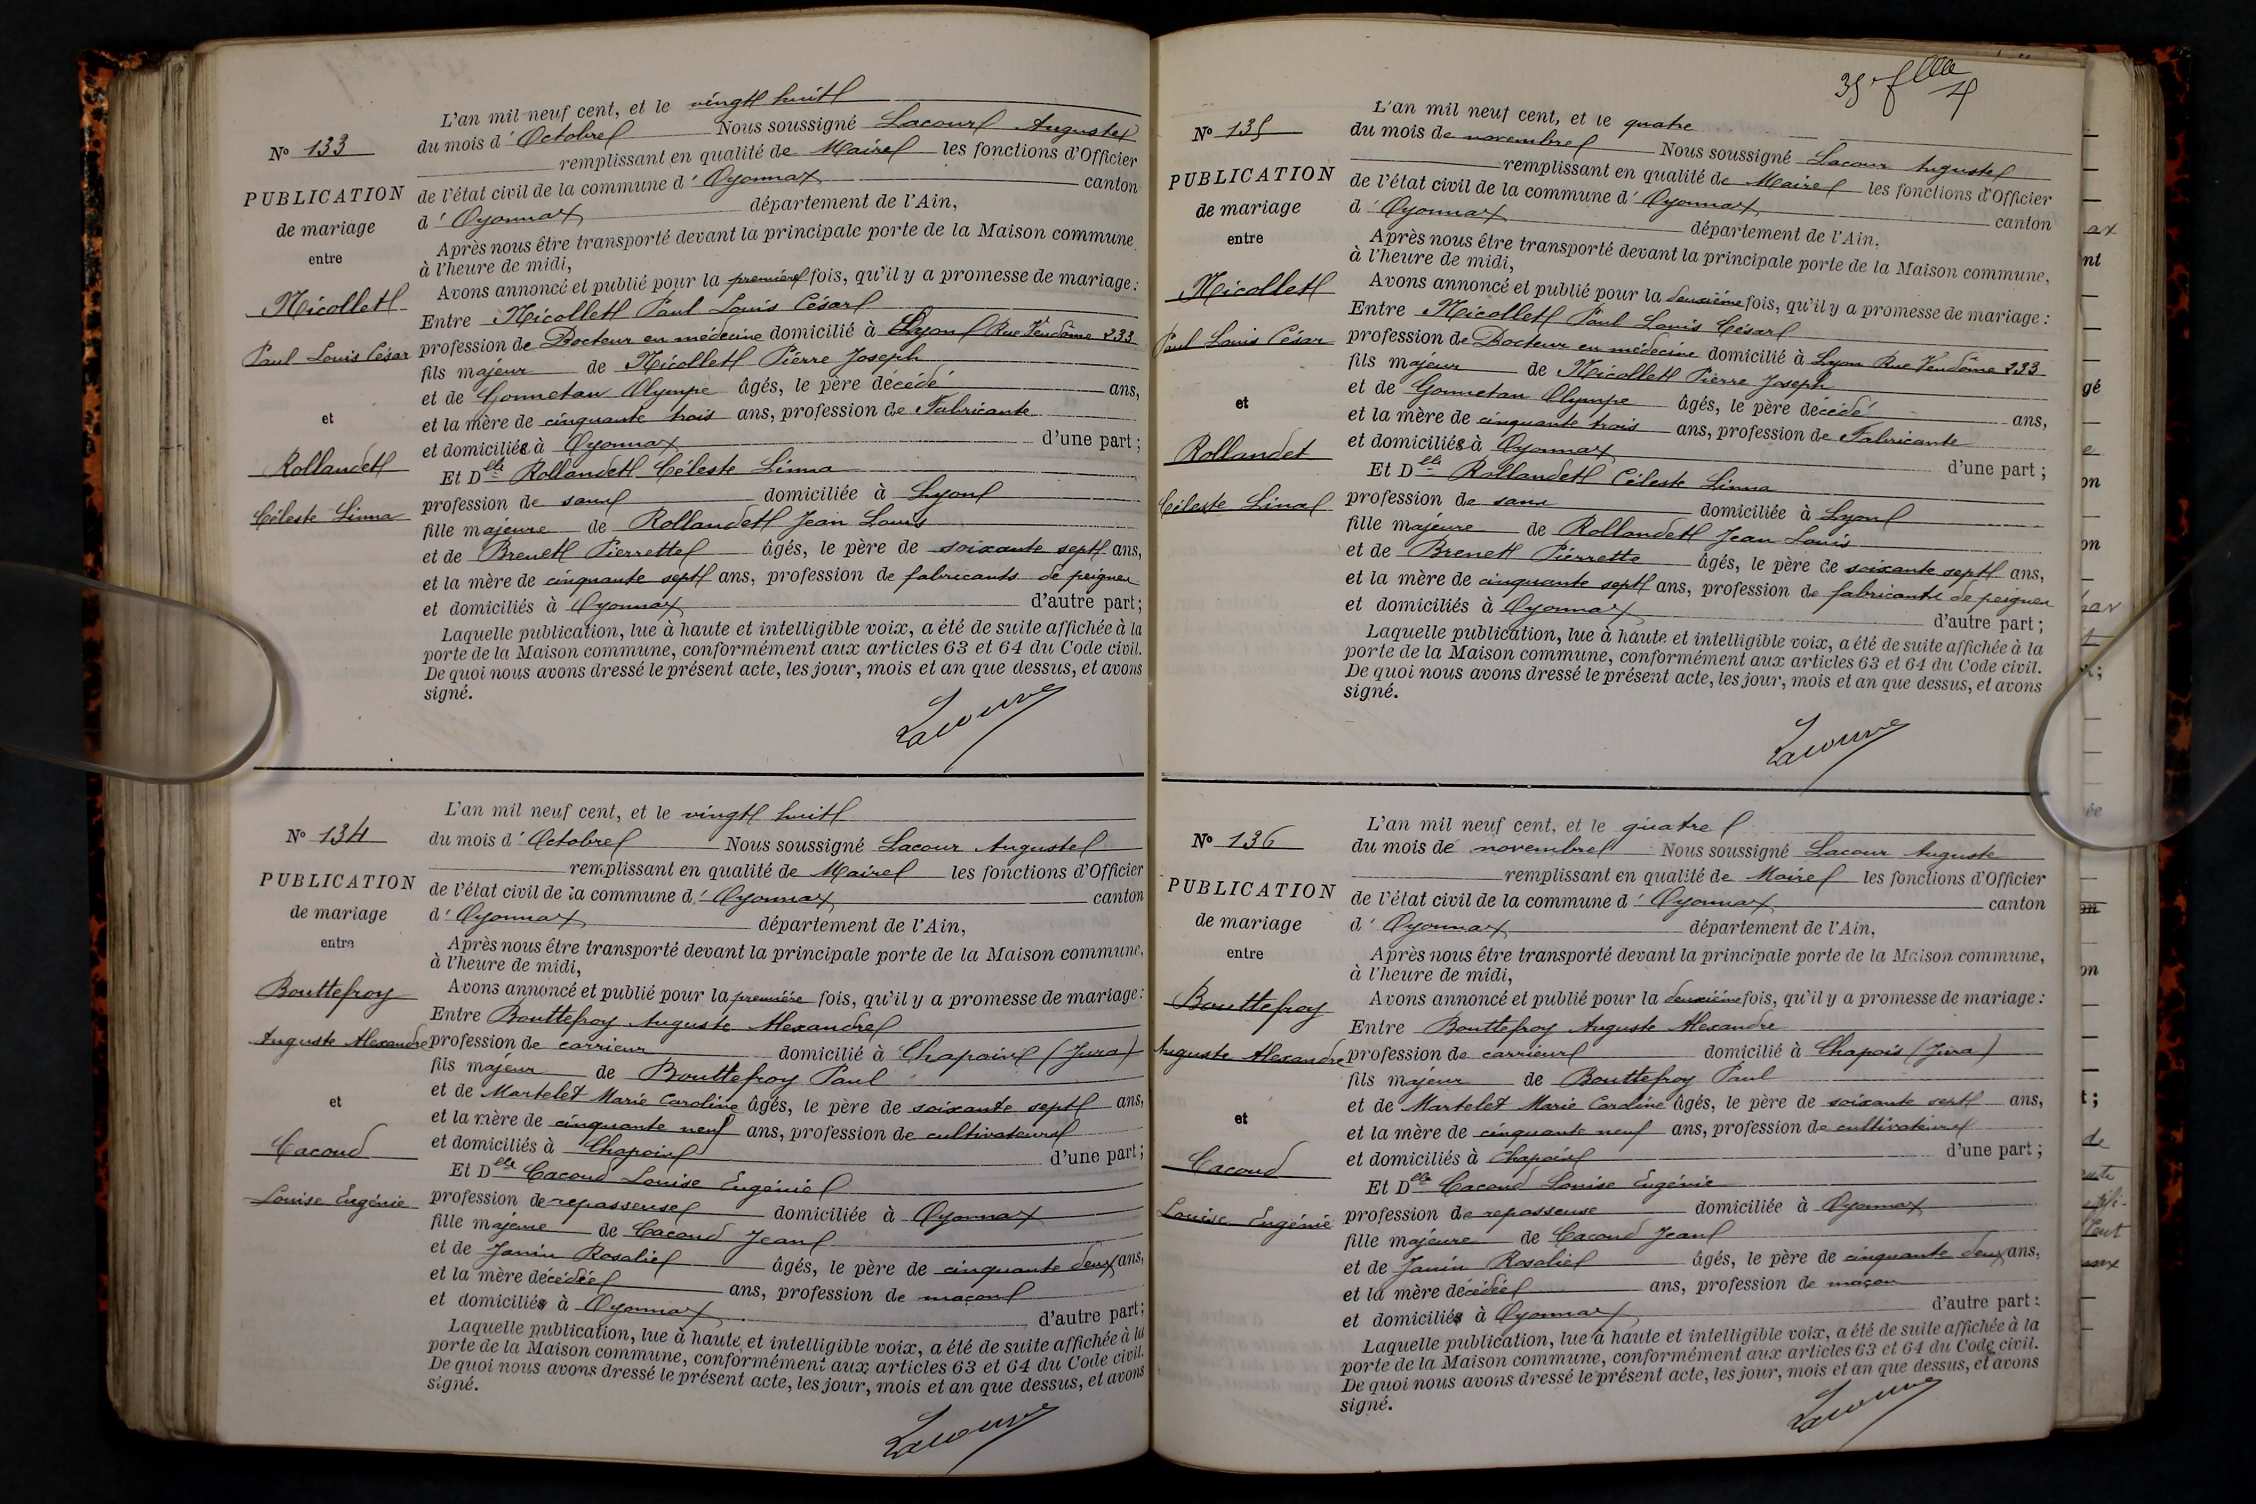 L'an mil neuf cent, et le vingt huit
du mois d' Octobre Nous soussigné Lacour Auguste
remplissant en qualité de Maire les fonctions d'Officier
de l'état civil de la commune d' Oyonnax canton
d' Oyonnax département de l'Ain,
Après nous être transporté devant la principale porte de la Maison commune
à l'heure de midi,
Avons annoncé et publié pour la première fois, qu'il y a promesse de mariage :
Entre Nicollet Paul Louis César
profession de Docteur en médecine domicilié à Lyon Rue Vendôme 233
fils majeur de Nicollet Pierre Joseph
et de Gonnetan Olympe âgés, le père décédé ans,
et la mère de cinquante trois ans, profession de Fabricante
et domiciliés à Oyonnax d'une part ;
Et Dlle Rollandet Céleste Linna
profession de sans domiciliée à Lyon
fille majeure de Rollandet Jean Louis
et de Brenet Pierrette âgés, le père de soixante sept ans,
et la mère de cinquante sept ans, profession de fabricants de peignes
et domiciliés à Oyonnax d'autre part ;
Laquelle publication, lue à haute et intelligible voix, a été de suite affichée à la
porte de la Maison commune, conformément aux articles 63 et 64 du Code civil.
De quoi nous avons dressé le présent acte, les jour, mois et an que dessus, et avons
signé.
Lacour
No 133
PUBLICATION
de mariage
entre
Nicollet
Paul Louis César
et
Rollandet
Céleste Linna
L'an mil neuf cent, et le vingt huit
du mois d' Octobre Nous soussigné Lacour Auguste
remplissant en qualité de Maire les fonctions d'Officier
de l'état civil de la commune d' Oyonnax canton
d' Oyonnax département de l'Ain,
Après nous être transporté devant la principale porte de la Maison commune,
à l'heure de midi,
Avons annoncé et publié pour la première fois, qu'il y a promesse de mariage :
Entre Bouttefroy Auguste Alexandre
profession de carrieur domicilié à Chapois (Jura)
fils majeur de Bouttefroy Paul
et de Martelet Marie Caroline âgés, le père de soixante sept ans,
et la mère de cinquante neuf ans, profession de cultivateurs
et domiciliés à Chapois d'une part ;
Et Dlle Cacoud Louise Eugénie
profession de repasseuse domiciliée à Oyonnax
fille majeure de Cacoud Jean
et de Janin Rosalie âgés, le père de cinquante deux ans,
et la mère décédée ans, profession de maçon
et domiciliés à Oyonnax d'autre part ;
Laquelle publication, lue à haute et intelligible voix, a été de suite affichée à la
porte de la Maison commune, conformément aux articles 63 et 64 du Code civil.
De quoi nous avons dressé le présent acte, les jour, mois et an que dessus, et avons
signé.
Lacour
No 134
PUBLICATION
de mariage
entre
Bouttefroy
Auguste Alexandre
et
Cacoud
Louise Eugénie
L'an mil neuf cent, et le quatre
du mois de novembre Nous soussigné Lacour Auguste
remplissant en qualité de Maire les fonctions d'Officier
de l'état civil de la commune d' Oyonnax canton
d' Oyonnax département de l'Ain,
Après nous être transporté devant la principale porte de la Maison commune,
à l'heure de midi,
Avons annoncé et publié pour la deuxième fois, qu'il y a promesse de mariage :
Entre Nicollet Paul Louis César
profession de Docteur en médecine domicilié à Lyon Rue Vendôme 233
fils majeur de Nicollet Pierre Joseph
et de Gonnetan Olympe âgés, le père décédé ans,
et la mère de cinquante trois ans, profession de Fabricante
et domiciliés à Oyonnax d'une part ;
Et Dlle Rollandet Céleste Linna
profession de sans domiciliée à Lyon
fille majeure de Rollandet Jean Louis
et de Brenet Pierrette âgés, le père de soixante sept ans,
et la mère de cinquante sept ans, profession de fabricants de peignes
et domiciliés à Oyonnax d'autre part ;
Laquelle publication, lue à haute et intelligible voix, a été de suite affichée à la
porte de la Maison commune, conformément aux articles 63 et 64 du Code civil.
De quoi nous avons dressé le présent acte, les jour, mois et an que dessus, et avons
signé.
Lacour
No 135
PUBLICATION
de mariage
entre
Nicollet
Paul Louis César
et
Rollandet
Céleste Lina
L'an mil neuf cent, et le quatre
du mois de novembre Nous soussigné Lacour Auguste
remplissant en qualité de Maire les fonctions d'Officier
de l'état civil de la commune d' Oyonnax canton
d' Oyonnax département de l'Ain,
Après nous être transporté devant la principale porte de la Maison commune,
à l'heure de midi,
Avons annoncé et publié pour la deuxième fois, qu'il y a promesse de mariage :
Entre Bouttefroy Auguste Alexandre
profession de carrieur domicilié à Chapois (Jura)
fils majeur de Bouttefroy Paul
et de Martelet Marie Caroline âgés, le père de soixante sept ans,
et la mère de cinquante neuf ans, profession de cultivateurs
et domiciliés à Chapois d'une part ;
Et Dlle Cacoud Louise Eugénie
profession de repasseuse domiciliée à Oyonnax
fille majeure de Cacoud Jean
et de Janin Rosalie âgés, le père de cinquante deux ans,
et la mère décédée ans, profession de maçon
et domiciliés à Oyonnax d'autre part ;
Laquelle publication, lue à haute et intelligible voix, a été de suite affichée à la
porte de la Maison commune, conformément aux articles 63 et 64 du Code civil.
De quoi nous avons dressé le présent acte, les jour, mois et an que dessus, et avons
signé.
Lacour
No 136
PUBLICATION
de mariage
entre
Bouttefroy
Auguste Alexandre
et
Cacoud
Louise Eugénie